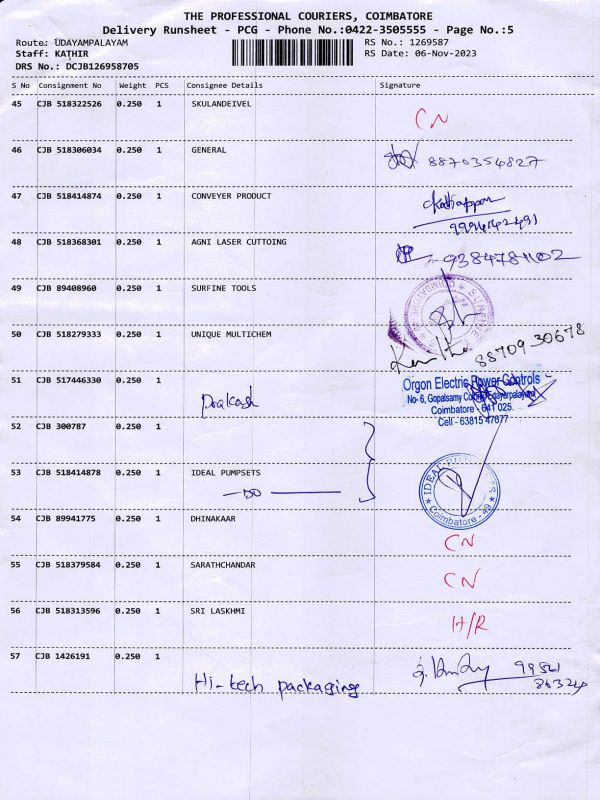 THE PROFESSIONAL COURIERS, COIMBATORE
Delivery Runsheet - PCG - Phone No.:0422-3505555 - Page No.:5
Route: UDAYAMPALAYAM
RS No.: 1269587
Staff: KATHIR
RS Date: 06-Nov-2023
DRS No.: DCJB126958705
S No Consignment No Weight PCS Consignee Details Signature
45 CJB 518322526 0.250 1 SKULANDEIVEL
CN
46 CJB 518306034 0.250 1 GENERAL
8870354827
47 CJB 518414874 0.250 1 CONVEYER PRODUCT
48 CJB 518368301 0.250 1 AGNI LASER CUTTOING
9384781102
49 CJB 89408960 0.250 1 SURFINE TOOLS
50 CJB 518279333 0.250 1 UNIQUE MULTICHEM
88709 30678
51 CJB 517446330 0.250 1
Prakash
Orgon Electric Power Controls
No- 6, Gopalsamy
Coimbatore - 641 025.
Cell - 63815 47677
52 CJB 300787 0.250 1
53 CJB 518414878 0.250 1 IDEAL PUMPSETS
-DO-
IDEAL
Coimbatore - 49
54 CJB 89941775 0.250 1 DHINAKAAR
CN
55 CJB 518379584 0.250 1 SARATHCHANDAR
CN
56 CJB 518313596 0.250 1 SRI LASKHMI
H/R
57 CJB 1426191 0.250 1
Hi-tech packaging